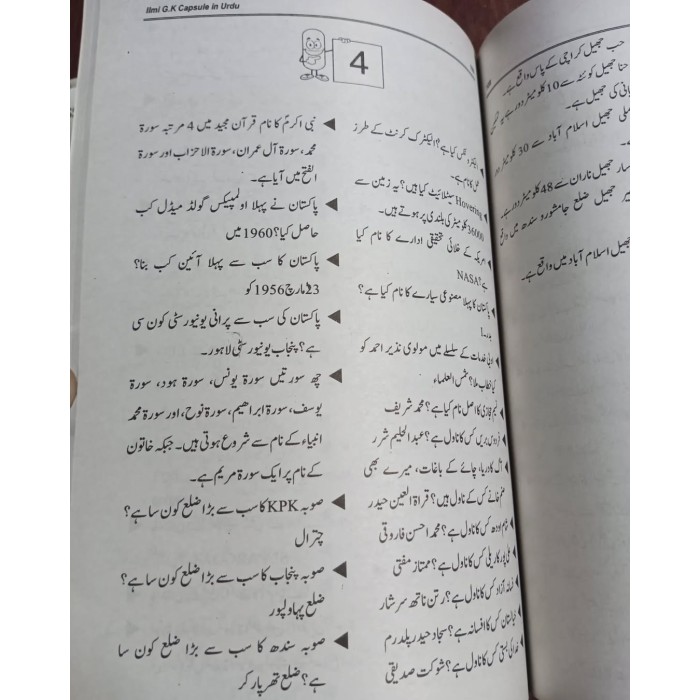 Ilmi G.K Capsule in Urdu
4
الیکٹرونکس کیا ہے؟ الیکٹرک کرنٹ کے طرز
عمل کا نام ہے۔
Hovering سیٹلائیٹ کیا ہیں؟ یہ زمین سے
36000 کلومیٹر کی بلندی پر ہوتے ہیں۔
امریکہ کے خلائی تحقیقی ادارے کا نام کیا
ہے؟ NASA
پاکستان کا پہلا مصنوعی سیارے کا نام کیا ہے؟
بدر۔I
ادبی خدمات کے سلسلے میں مولوی نذیر احمد کو
کیا خطاب ملا؟ شمس العلماء
نسیم حجازی کا اصل نام کیا ہے؟ محمد شریف
فردوس بریں کس کا ناول ہے؟ عبدالحلیم شرر
آگ کا دریا، چائے کے باغات، میرے بھی
صنم خانے کس کے ناول ہیں؟ قراۃ العین حیدر
شام اودھ کس کا ناول ہے؟ محمد احسن فاروقی
علی پور کا ایلی کس کا ناول ہے؟ ممتاز مفتی
فسانہ آزاد کس کا ناول ہے؟ رتن ناتھ سرشار
خیالستان کس کا افسانہ ہے؟ سجاد حیدر یلدرم
خدا کی بستی کس کا ناول ہے؟ شوکت صدیقی
نبی اکرمؐ کا نام قرآن مجید میں 4 مرتبہ سورۃ
محمد، سورۃ آل عمران، سورۃ الاحزاب اور سورۃ
الفتح میں آیا ہے۔
پاکستان نے پہلا اولمپکس گولڈ میڈل کب
حاصل کیا؟ 1960 میں
پاکستان کا سب سے پہلا آئین کب بنا؟
23 مارچ 1956 کو
پاکستان کی سب سے پرانی یونیورسٹی کون سی
ہے؟ پنجاب یونیورسٹی لاہور۔
چھ سورتیں سورۃ یونس، سورۃ ہود، سورۃ
یوسف، سورۃ ابراھیم، سورۃ نوح، اور سورۃ محمد
انبیاء کے نام سے شروع ہوتی ہیں۔ جبکہ خاتون
کے نام پر ایک سورۃ مریم ہے۔
صوبہ KPK کا سب سے بڑا ضلع کون سا ہے؟
چترال
صوبہ پنجاب کا سب سے بڑا ضلع کون سا ہے؟
ضلع بہاولپور
صوبہ سندھ کا سب سے بڑا ضلع کون سا
ہے؟ ضلع تھرپارکر
حب جھیل کراچی کے پاس واقع ہے۔
حنا جھیل کوئٹہ سے 10 کلومیٹر دور ہے
پانی کی جھیل ہے۔
جھیل اسلام آباد سے 30 کلومیٹر
جھیل ناران سے 48 کلومیٹر دور ہے۔
جھیل ضلع جامشورو سندھ میں واقع
جھیل اسلام آباد میں واقع ہے۔